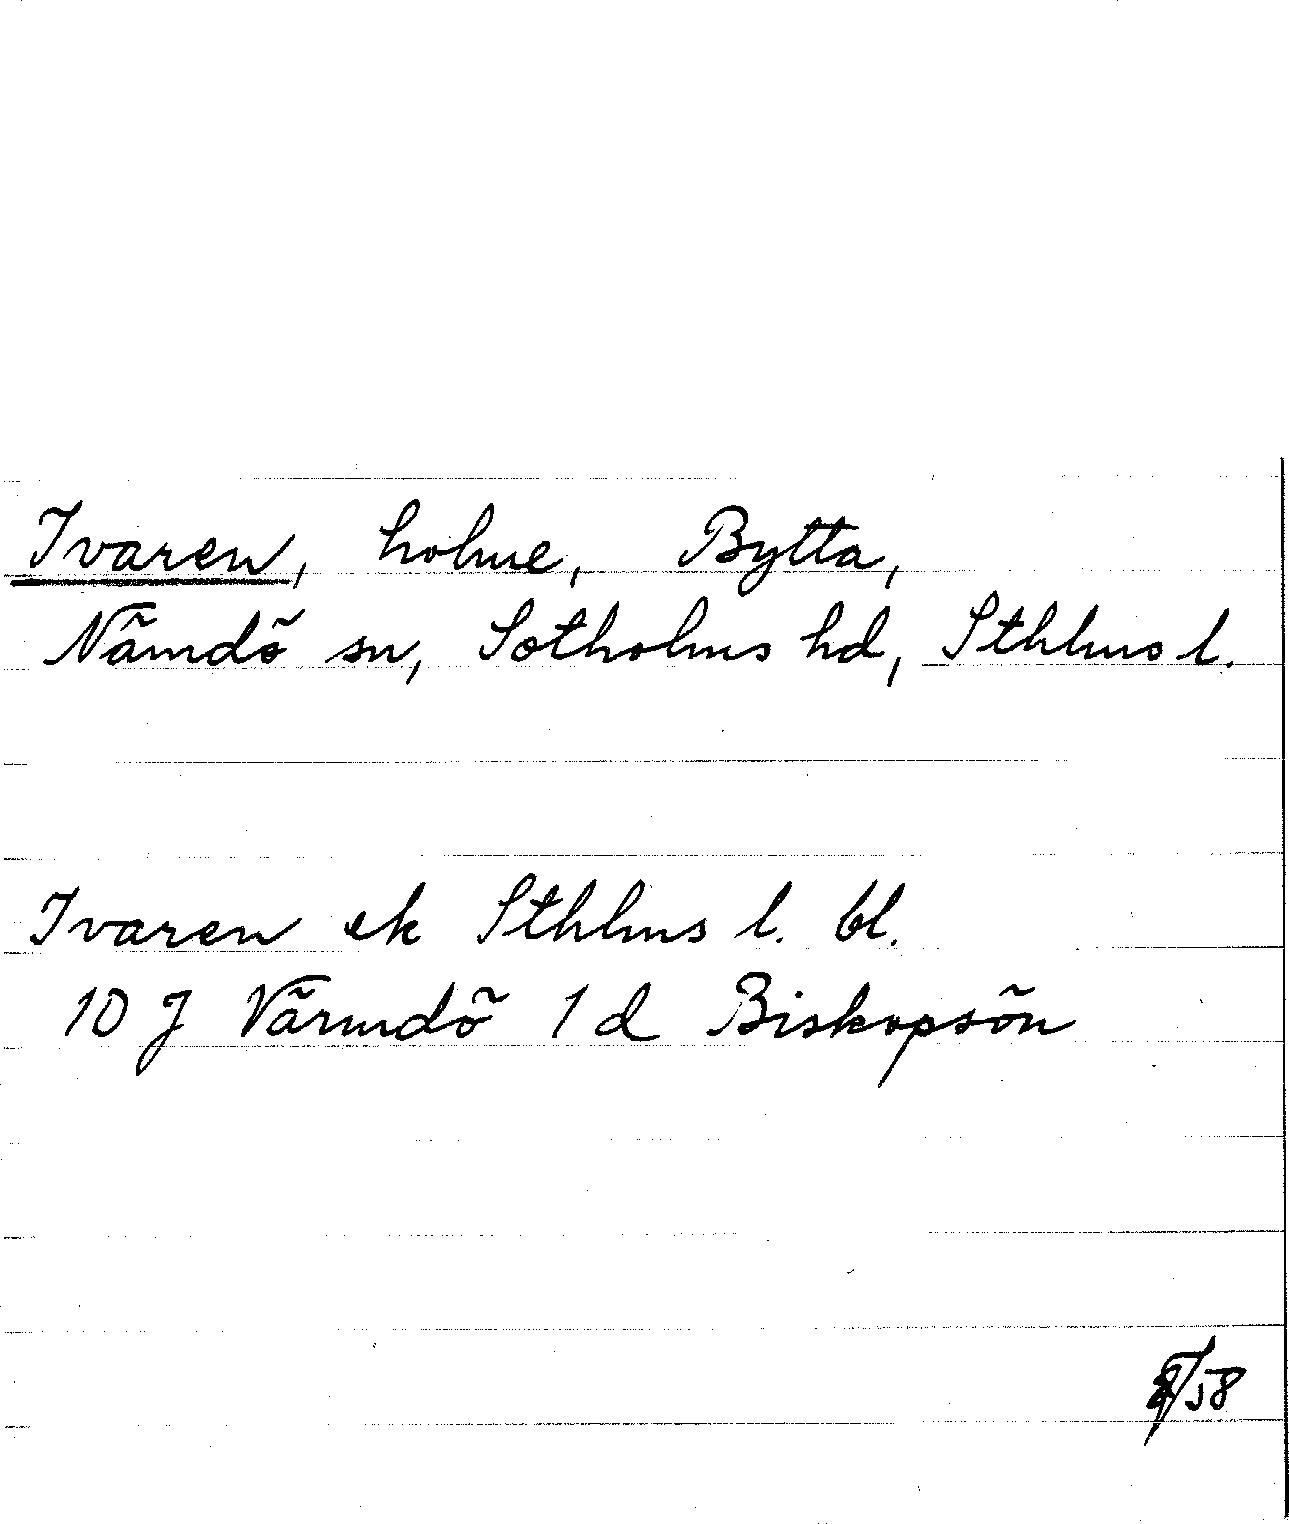 Ivaren, holme, Bytta,
Nämdö sn, Sotholms hd, Sthlms l.
Ivaren ek Sthlms l. bl.
10 J Värmdö 1 d Biskopsön
/58